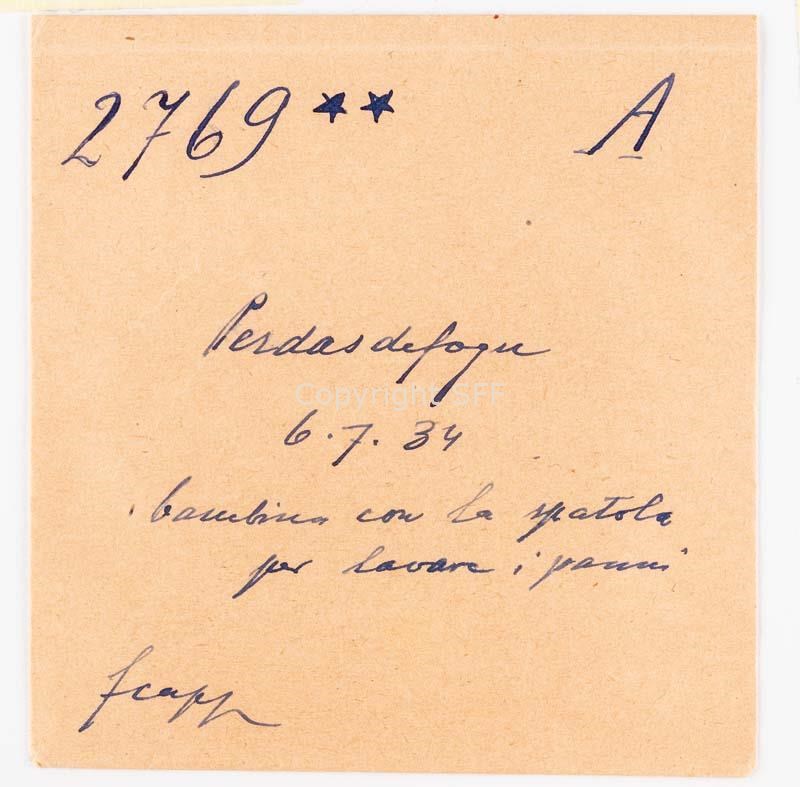 2769 ** A
Perdasdefogu
Copyright SFF
6.7.34
bambina con la spatola
per lavare i panni